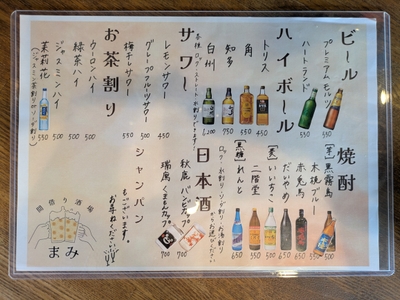 ビール
プレミアムモルツ 550
ハートランド 550
ハイボール
トリス 450
角 450
知多 750
白州 1,200
サワー
レモンサワー 450
グレープフルツサワー 500
梅干しサワー 550
お茶割り
ウーロンハイ 500
緑茶ハイ 500
ジャスミンハイ 500
茉莉花 550
(ジャスミン茶割り or ソーダ割り)
焼酎
[芋] 黒霧島 500
木挽ブルー
赤兎馬
だいやめ
[麦] いいちこ
二階堂
[黒糖] れんと 650
日本酒
秋鹿 バンビカップ 700
瑞鷹 くまもんカップ 700
シャンパン
もございます。
お尋ねください
間借り酒場
まみ